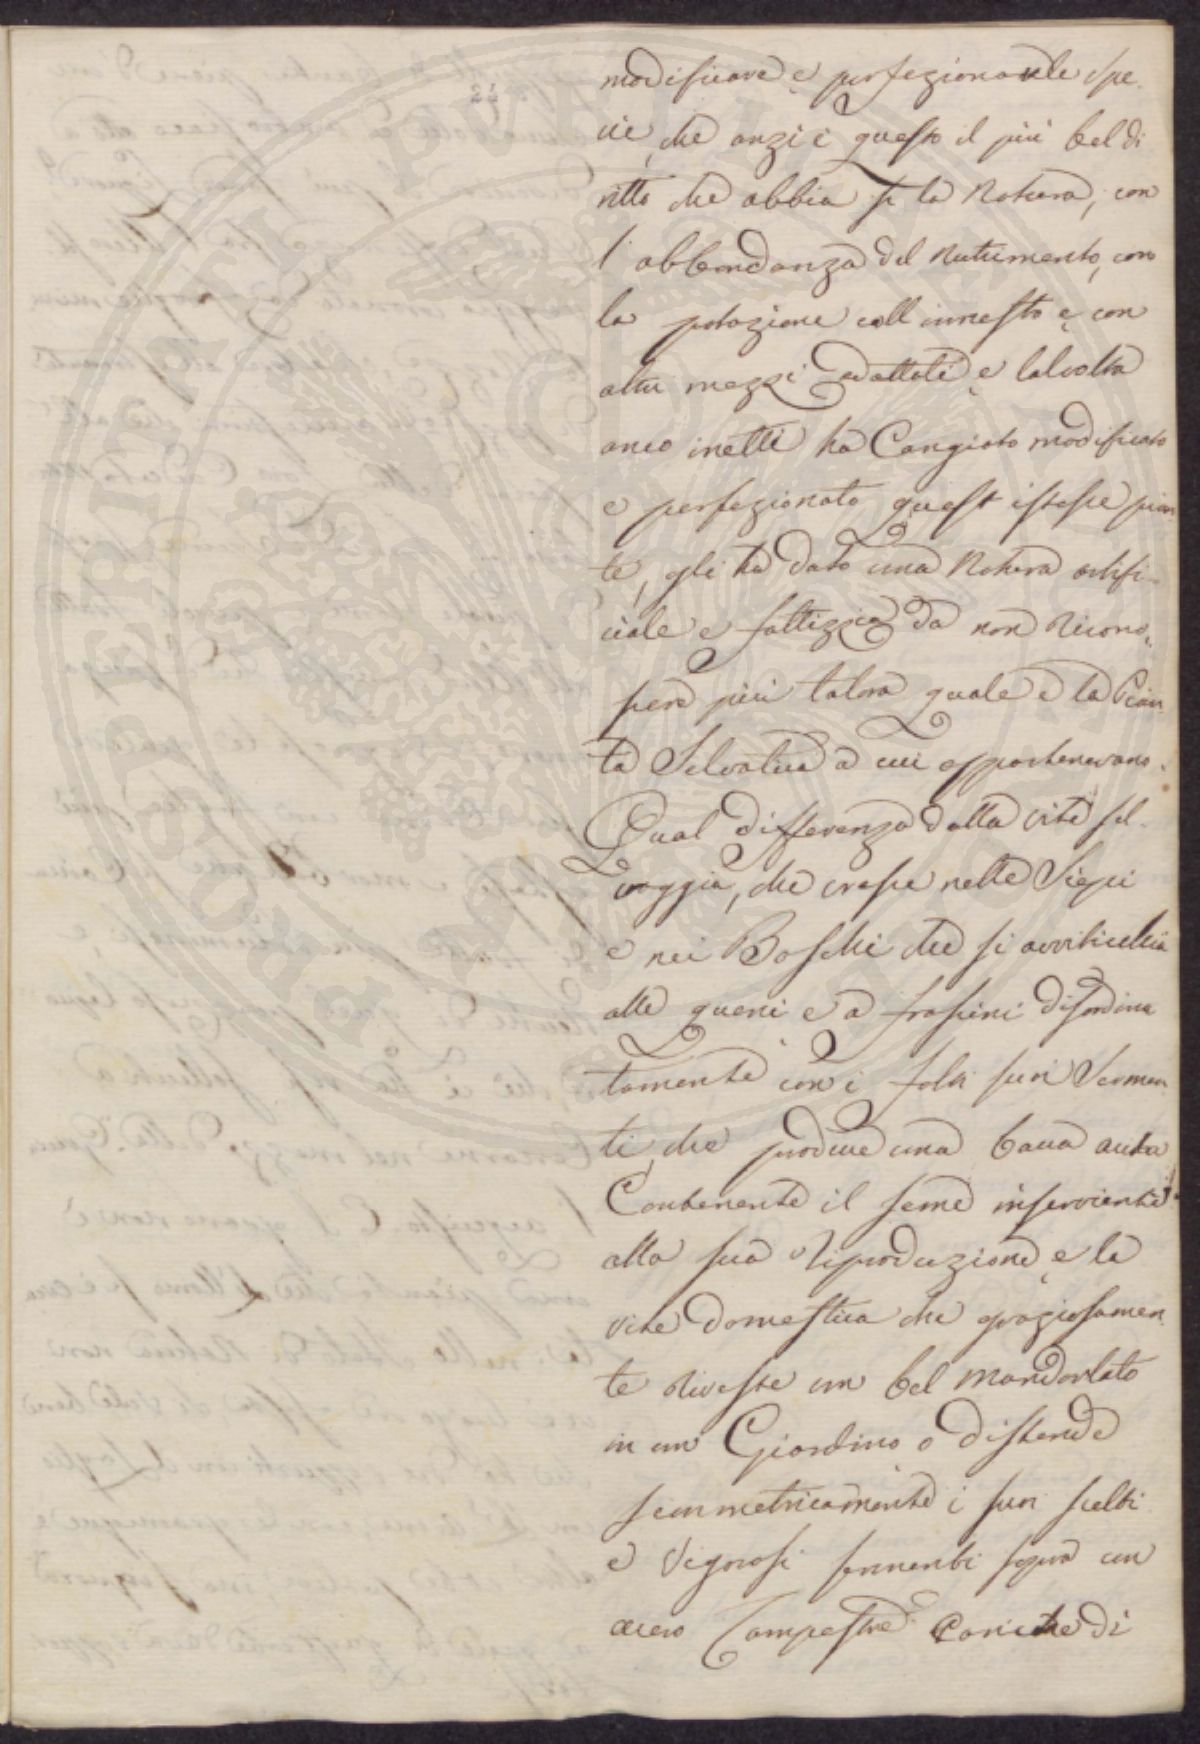 modificare e perfezionare le Spe
cie, che anzi è questo il più bel di
ritto che abbia su la Natura, con
l'abbondanza del nutrimento, con
la potazione coll innesto e con
altri mezzi adattati e talvolta
anco inetti ha Cangiato modificato
e perfezionato quest istesse pian
te, gli ha dato una Natura artifi-
ciale e fattizzia da non Ricono-
scere più talora quale è la Pian
ta Selvatica a cui appartenevano.
Qual differenza dalla vite sel-
vaggia, che cresce nelle Siepi
e nei Boschi che si avviticchia
alle querci e a frassini disordina
tamente con i folti suoi Sermen
ti, che produce una bacca
Contenente il seme inserviente
alla sua Riproduzione, e la
vite domestica che graziosamen
te Riveste un bel Mandorlato
in un Giardino o distende
simmetricamente i suoi scelti
e Vigorosi sermenti sopra un
acero Campestre Cariche di